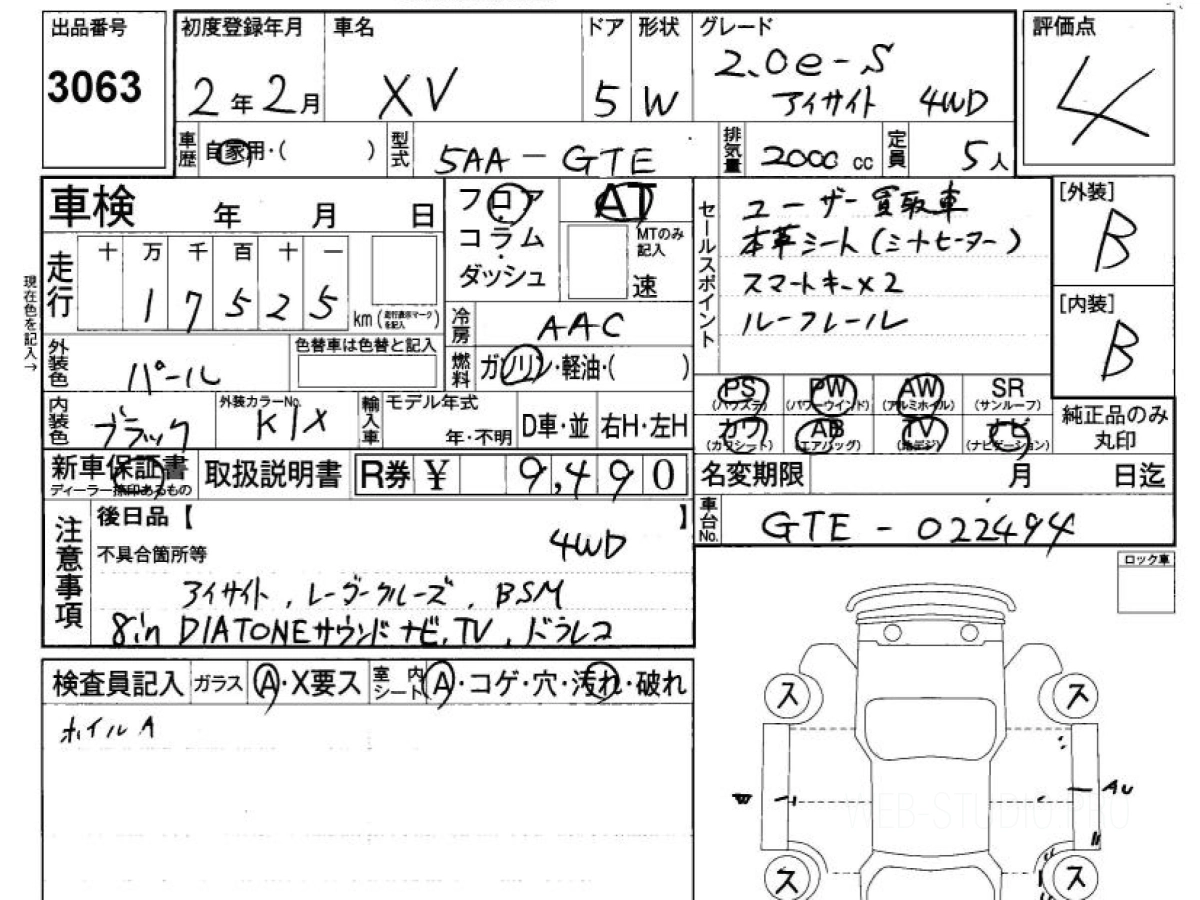 出品番号
3063
初度登録年月
2年2月
車名
XV
ドア
5
形状
W
グレード
2.0e-S
アイサイト 4WD
評価点
4
車歴
自家用・( )
型式
5AA-GTE
排気量
2000 cc
定員
5人
車検 年 月 日
フロア
コラム
ダッシュ
AT
MTのみ記入
速
セールスポイント
ユーザー買取車
本革シート(シートヒーター)
スマートキー×2
ルーフレール
[外装]
B
[内装]
B
現在色を記入→
走行
十 万 千 百 十 一
1 7 5 2 5
km(走行表示マークを記入)
冷房
AAC
燃料
ガソリン・軽油・( )
外装色
パール
色替車は色替と記入
内装色
ブラック
外装カラーNo.
K1X
輸入車
モデル年式
年・不明
D車・並
右H・左H
PS
(パワステ)
PW
(パワーウインド)
AW
(アルミホイル)
SR
(サンルーフ)
カワ
(カワシート)
AB
(エアバッグ)
TV
(地デジ)
ナビ
(ナビゲーション)
純正品のみ
丸印
新車保証書
ディーラー捺印あるもの
取扱説明書
R券 ¥ 9,490
名変期限 月 日迄
車台No.
GTE-022494
注意事項
後日品【 】
不具合箇所等
4WD
アイサイト, レーダークルーズ, BSM
8in DIATONEサウンドナビ, TV, ドラレコ
ロック車
検査員記入
ガラス
A・X要ス
室内シート
A・コゲ・穴・汚れ・破れ
ホイルA
ス
ス
W
AU
ス
ス
WEB-STUDIO.PRO